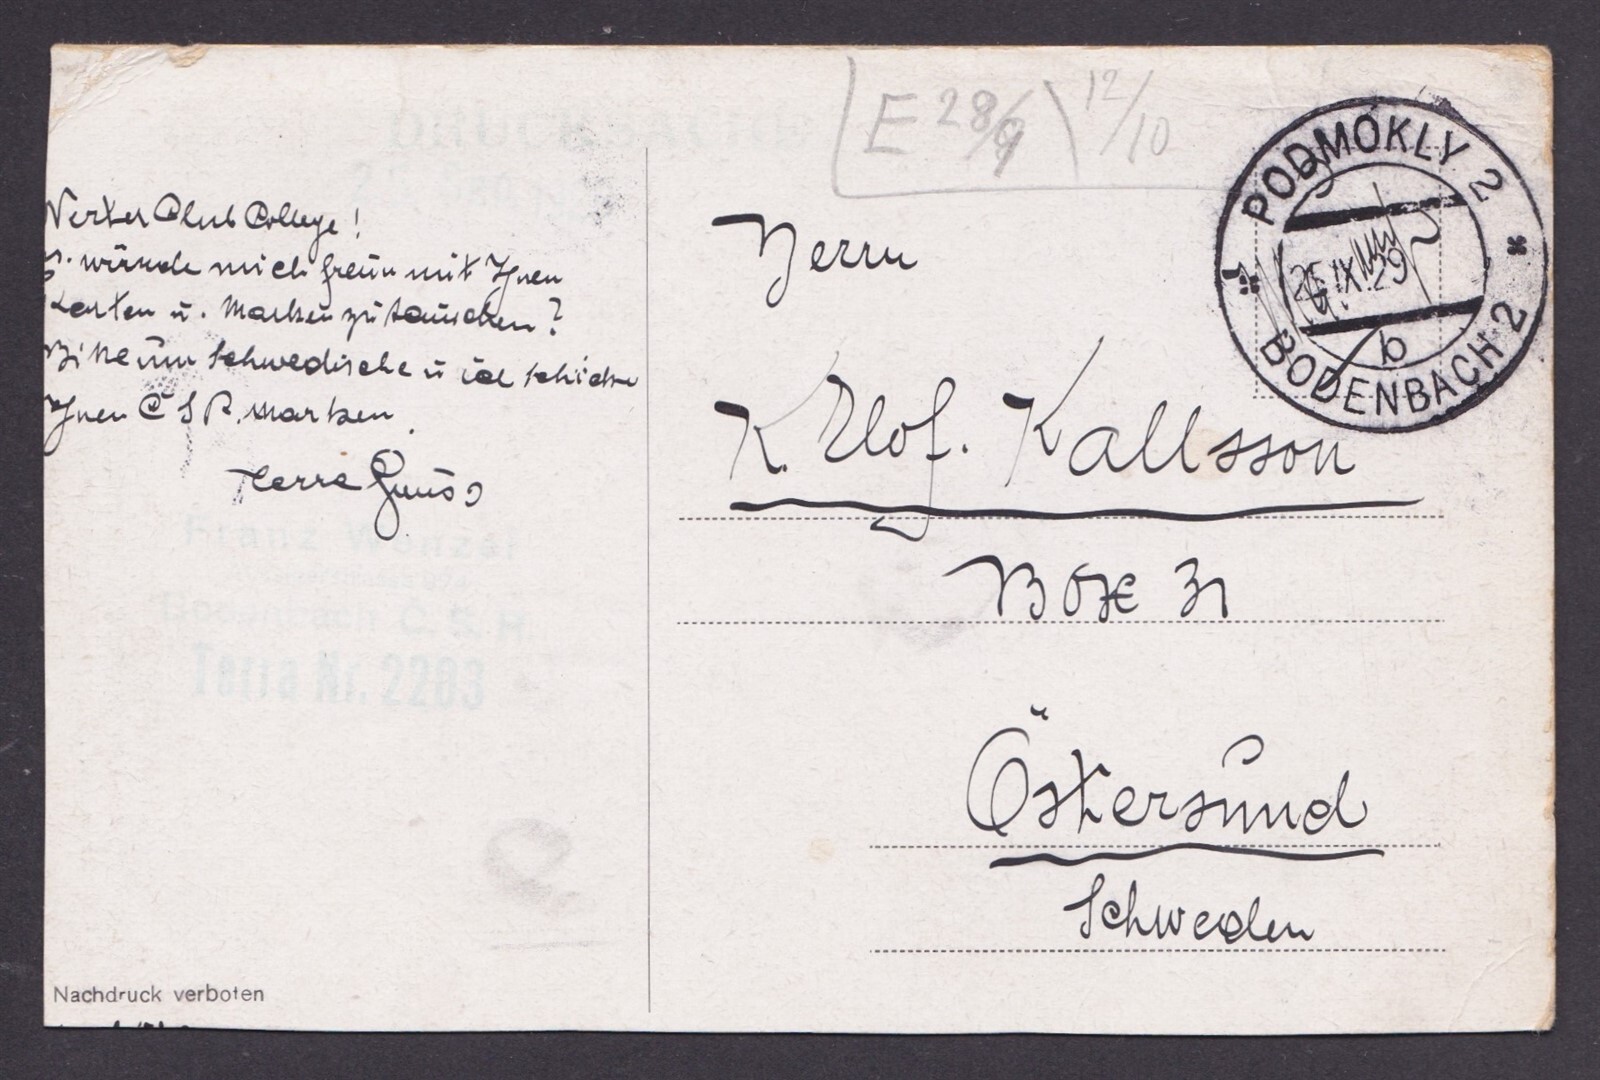 Werter Club College!
würde mich freun mit Ihnen
Karten u. Marken zu tauschen?
Bitte um schwedische u ich schicke
Ihnen ČSR. Marken.
Terra Gruss
Franz Wenzel
Bodenbach C. S. R.
Terra Nr. 2203
Nachdruck verboten
DRUCKSACHE
E 28/9 12/10
PODMOKLY 2
26.IX.29
b
BODENBACH 2
Herrn
K. Olof. Kallsson
Box 31
Östersund
Schweden